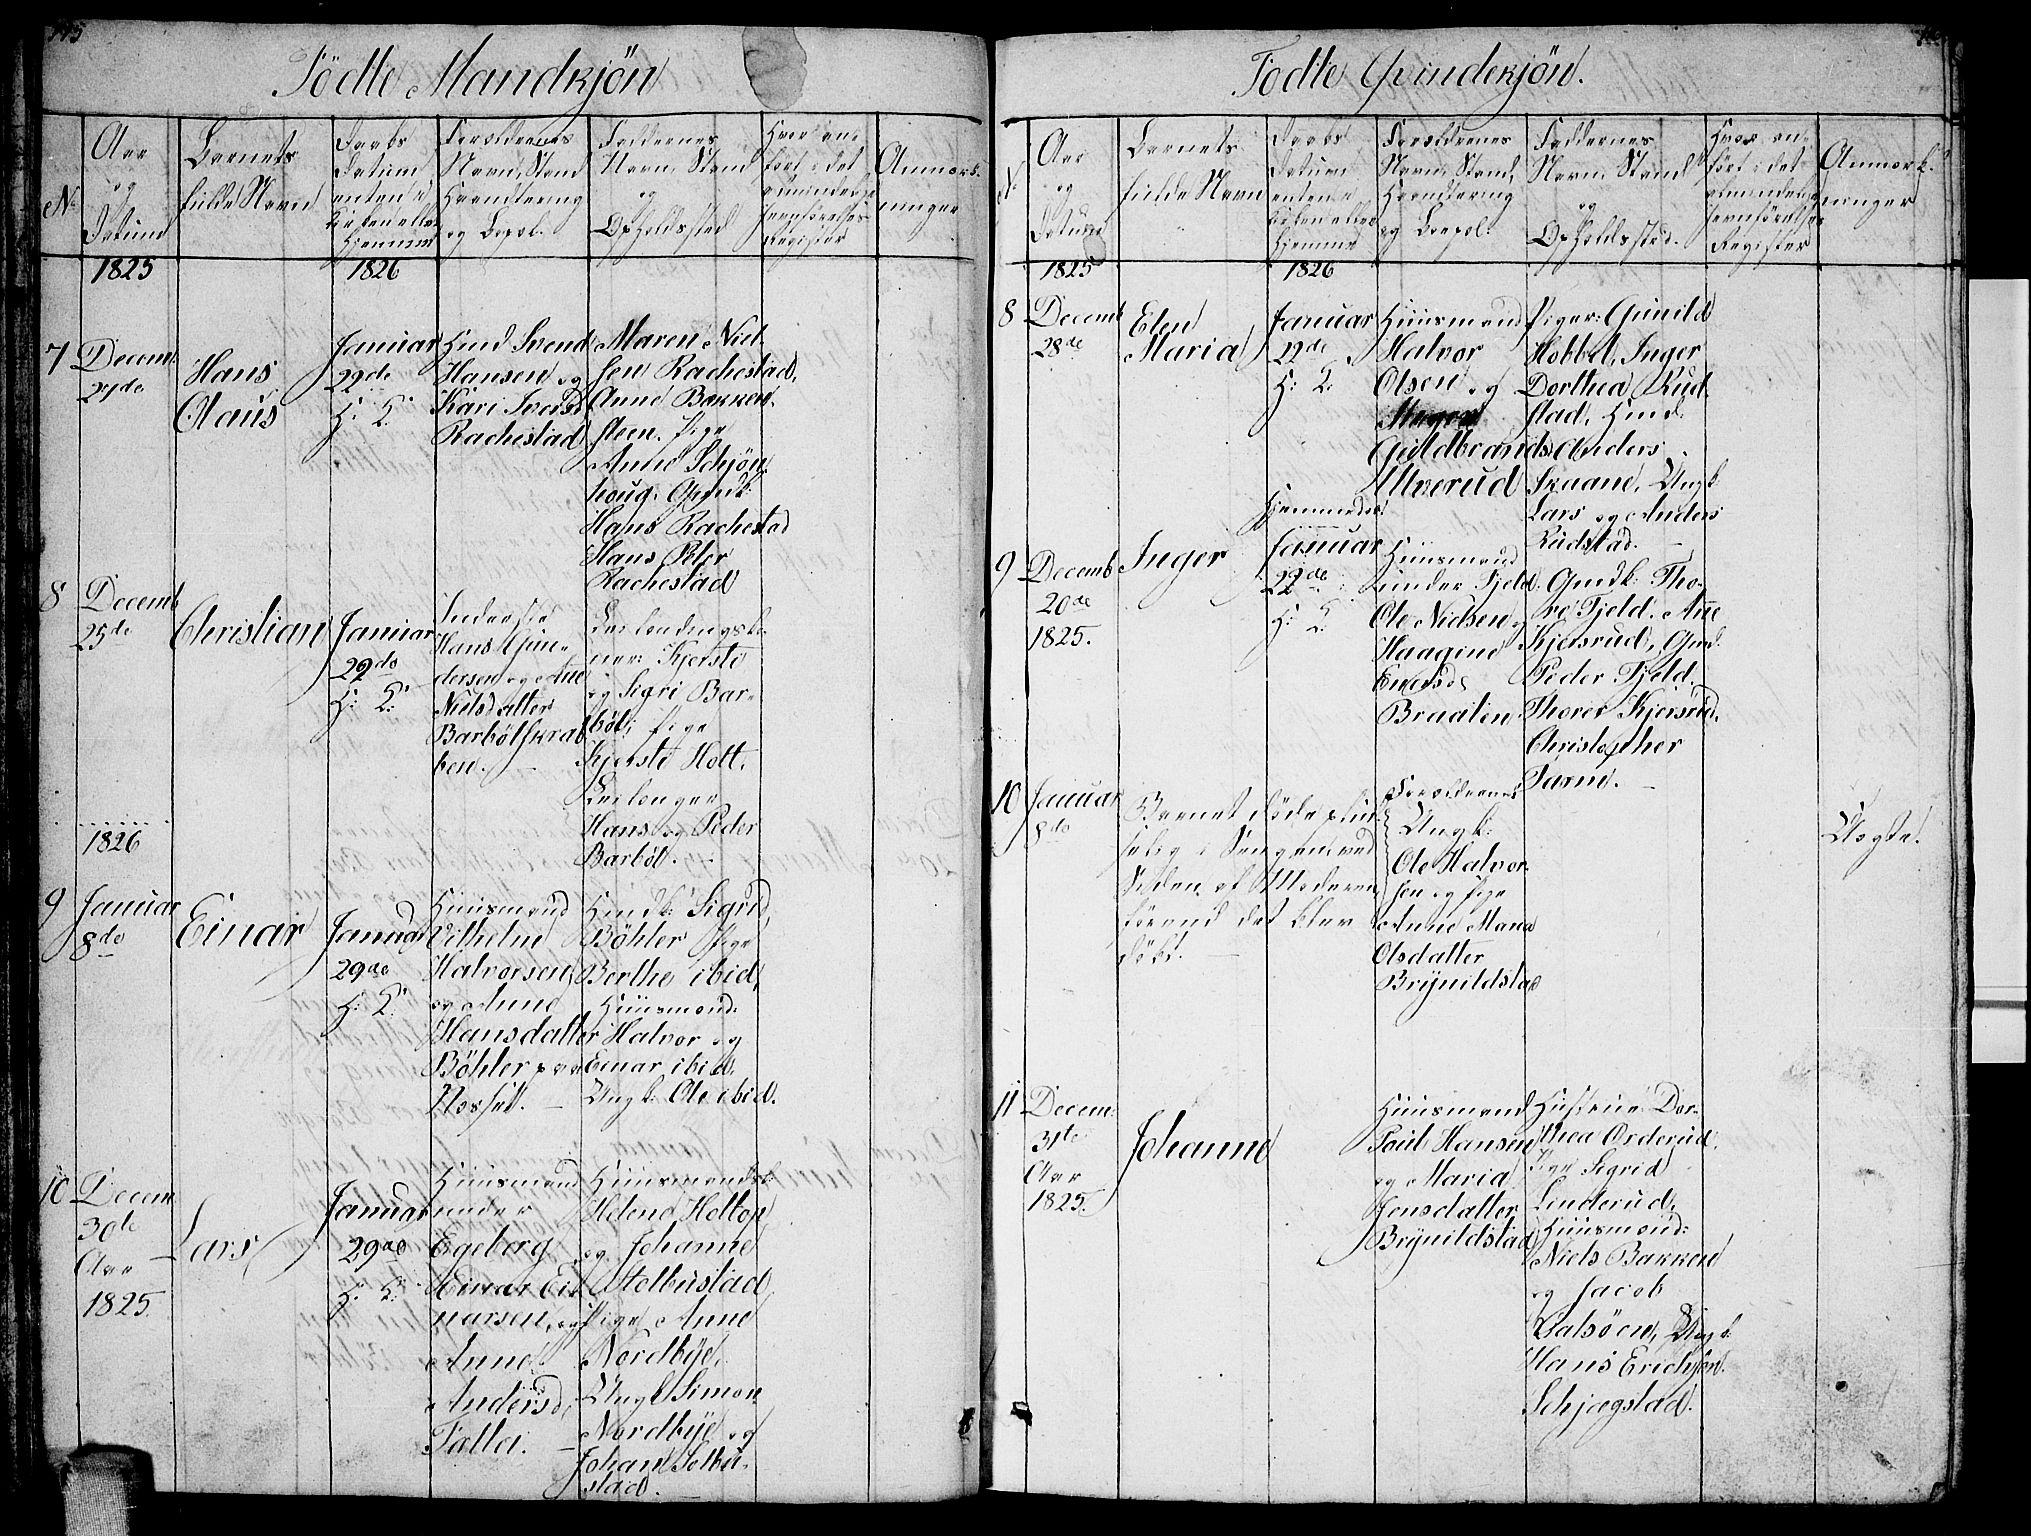 Födte Mandkjön
No
Aar
og
Datum
Barnets
fulde Navn
Daabs
Datum
enten i
Kirken eller
Hjemme
Forældrenes
Navn, Stand
Haandtering
og Boepæl.
Faddernes
Navn, Stand
og
Opholdssted
Hvor an-
ført i det
almindelige
Jevnførelses
Register
Anmærk-
ninger
1825
1826
7
Decem:
27de
Hans
Olaus
Januar
29de
H: K:
Gmd Svend
Hansen og
Kari Iversd
Rachestad
Maren Niel-
sen Rachestad,
Anne Bakken-
steen. Pige
Anne Schjön-
houg. Gmdk:
Hans Rachestad
Hans Peter
Rachestad
8
Decemb
25de
Christian
Januar
29de
H: K:
Inderste
Hans Gun-
dersen og Ane
Nielsdatter
Barbölskrab-
ben.
Kjerste
og Sigri Bar-
böl, Pige
Kjerste Holt,
Hans og Peder
Barböl.
1826
9
Januar
8de
Einar
Januar
29de
H: K:
Huusmand
Vilhelm
Halvorsen
og Anne
Hansdatter
Böhler paa
Næsset.
Gmdk: Sigrid
Böhler Pige
Berthe ibid,
Huusmænd:
Halvor og
Einar ibid,
Ungk: Ole ibid.
10
Decem
30te
Aar
1825
Lars
Januar
29de
H: K:
Huusmand
under
Egeberg
Einar Ei-
narsen, og
Anne
Andersd,
Taltei.
Huusmandsk:
Helene Holtop
og Johanne
Stolbustad
Pige Anne
Nordbye,
Ungk Simon
Nordbye og
Johan Solbu-
stad.
Födte Qvindekjön.
No
Aar
og
Datum
Barnets
fulde Navn
Daabs
Datum
enten i
Kirken eller
Hjemme
Forældrenes
Navn, Stand,
Haandtering
og Boepæl:
Faddernes
Navn, Stand
og
Opholdssted.
Hvor an-
ført i det
almindelige
Jevnførelses
Register
Anmærk-
ninger
1825
1826
8
Decemb
28de
Elen
Maria
Januar
29de
H: K:
Huusmand
Halvor
Olsen og
Guldbrandsd
Ulverud
Piger: Gunild
Hobbel, Inger
Dorthea Rud-
stad, Gmd:
Anders
Skaane, Ungk
Lars og Anders
Rudstad.
9
Decemb
20de
1825.
Inger
Hjemmedøbt
Januar
29de
H: K:
Huusmand
under Fjeld
Ole Nielsen og
Haagine
Enersd
Braaten
Gmdk: Tho-
re Fjeld. Ane
Kjersrud, Gmd:
Peder Fjeld.
Thorer Kjersrud.
Christopher
10
Januar
8de
Barnet døde plud-
selig i Sengen ved
Siden af Moderen
førend det blev
döbt.
Forældrene
Ungk:
Ole Halvor-
sen og Pige
Anne Maria
Olsdatter
Brynildstad
Uægte.
11
Decem:
31te
Aar
1825.
Johanne
Huusmand
Poul Hansen
og Maria
Jensdatter
Brynildstad
Hustrue: Dor-
thea Orderud.
Pige Sigrid
Linderud,
Huusmænd:
Niels Bakken
og Jacob
Ungk:
Hans Erichsen
Schjægstad.